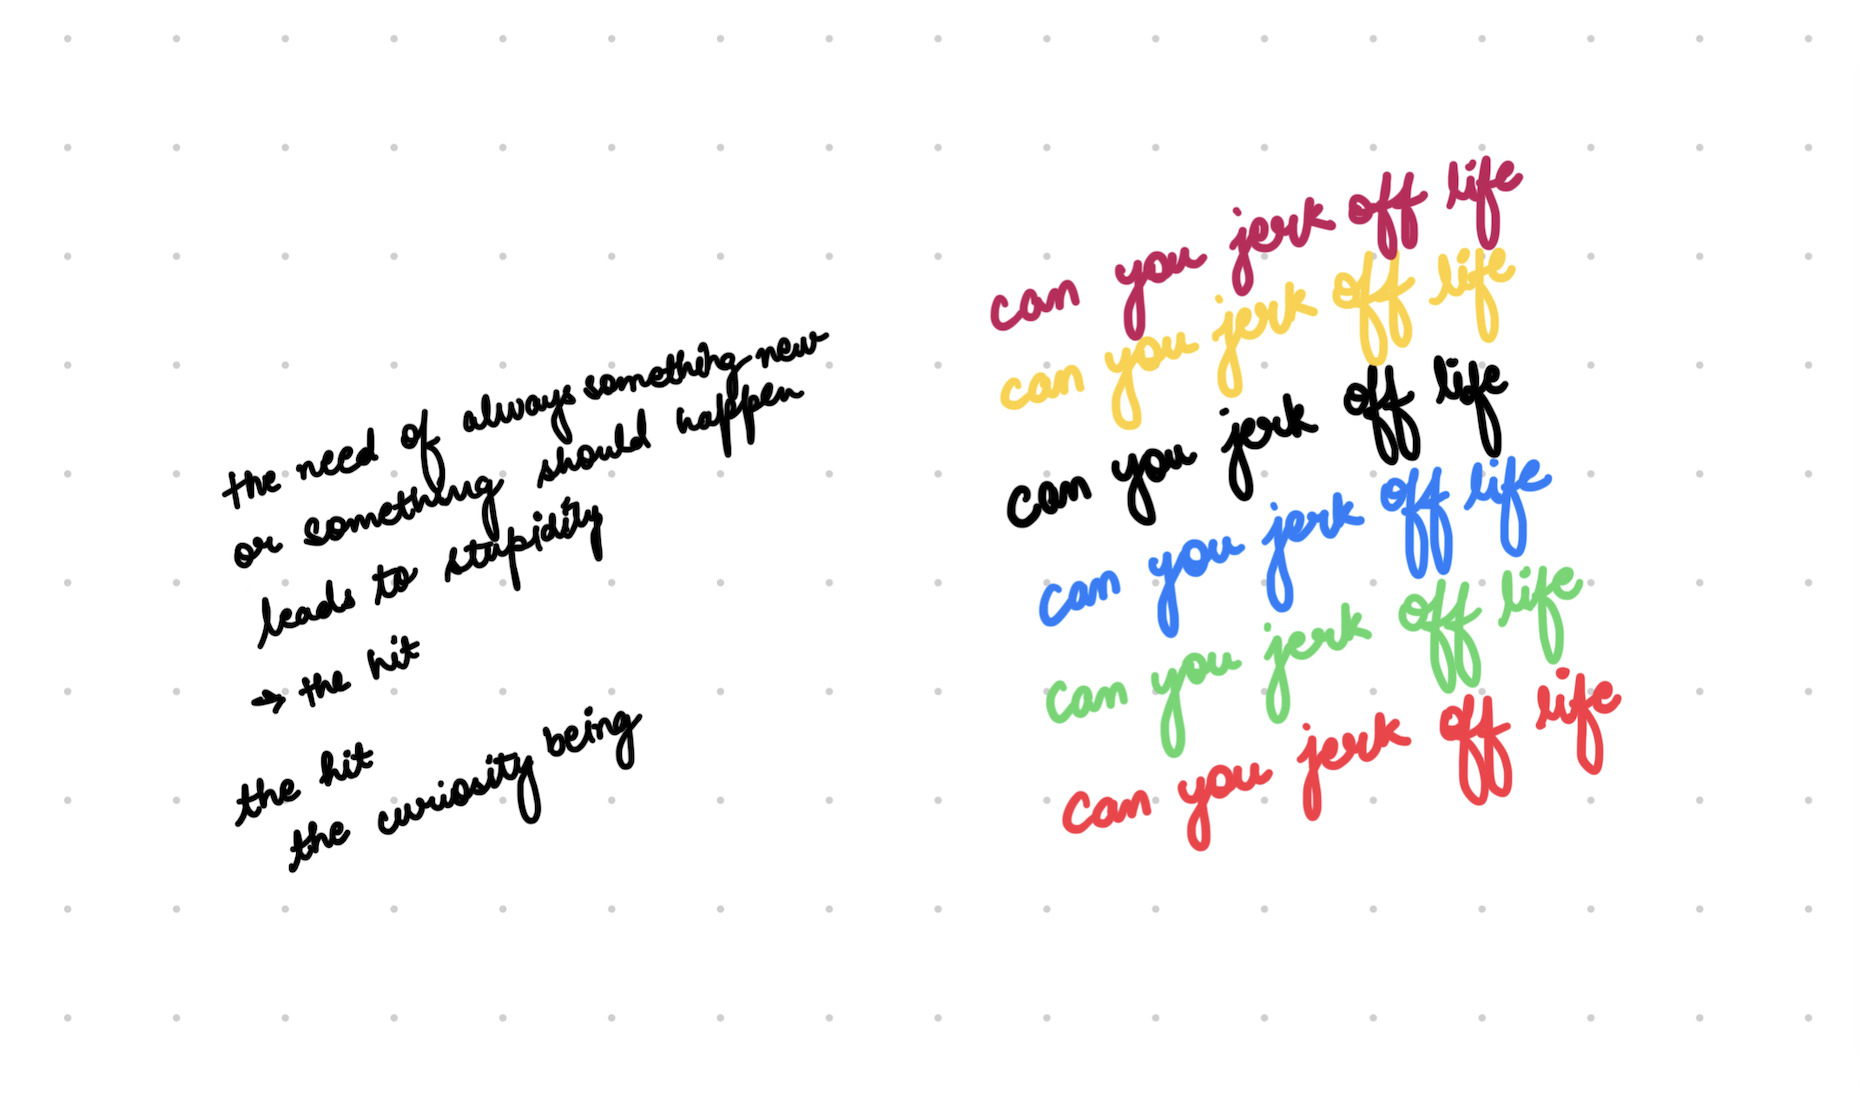 the need of always something new
or something should happen
leads to stupidity
→ the hit
the hit
the curiosity being
can you jerk off life
can you jerk off life
can you jerk off life
can you jerk off life
can you jerk off life
can you jerk off life